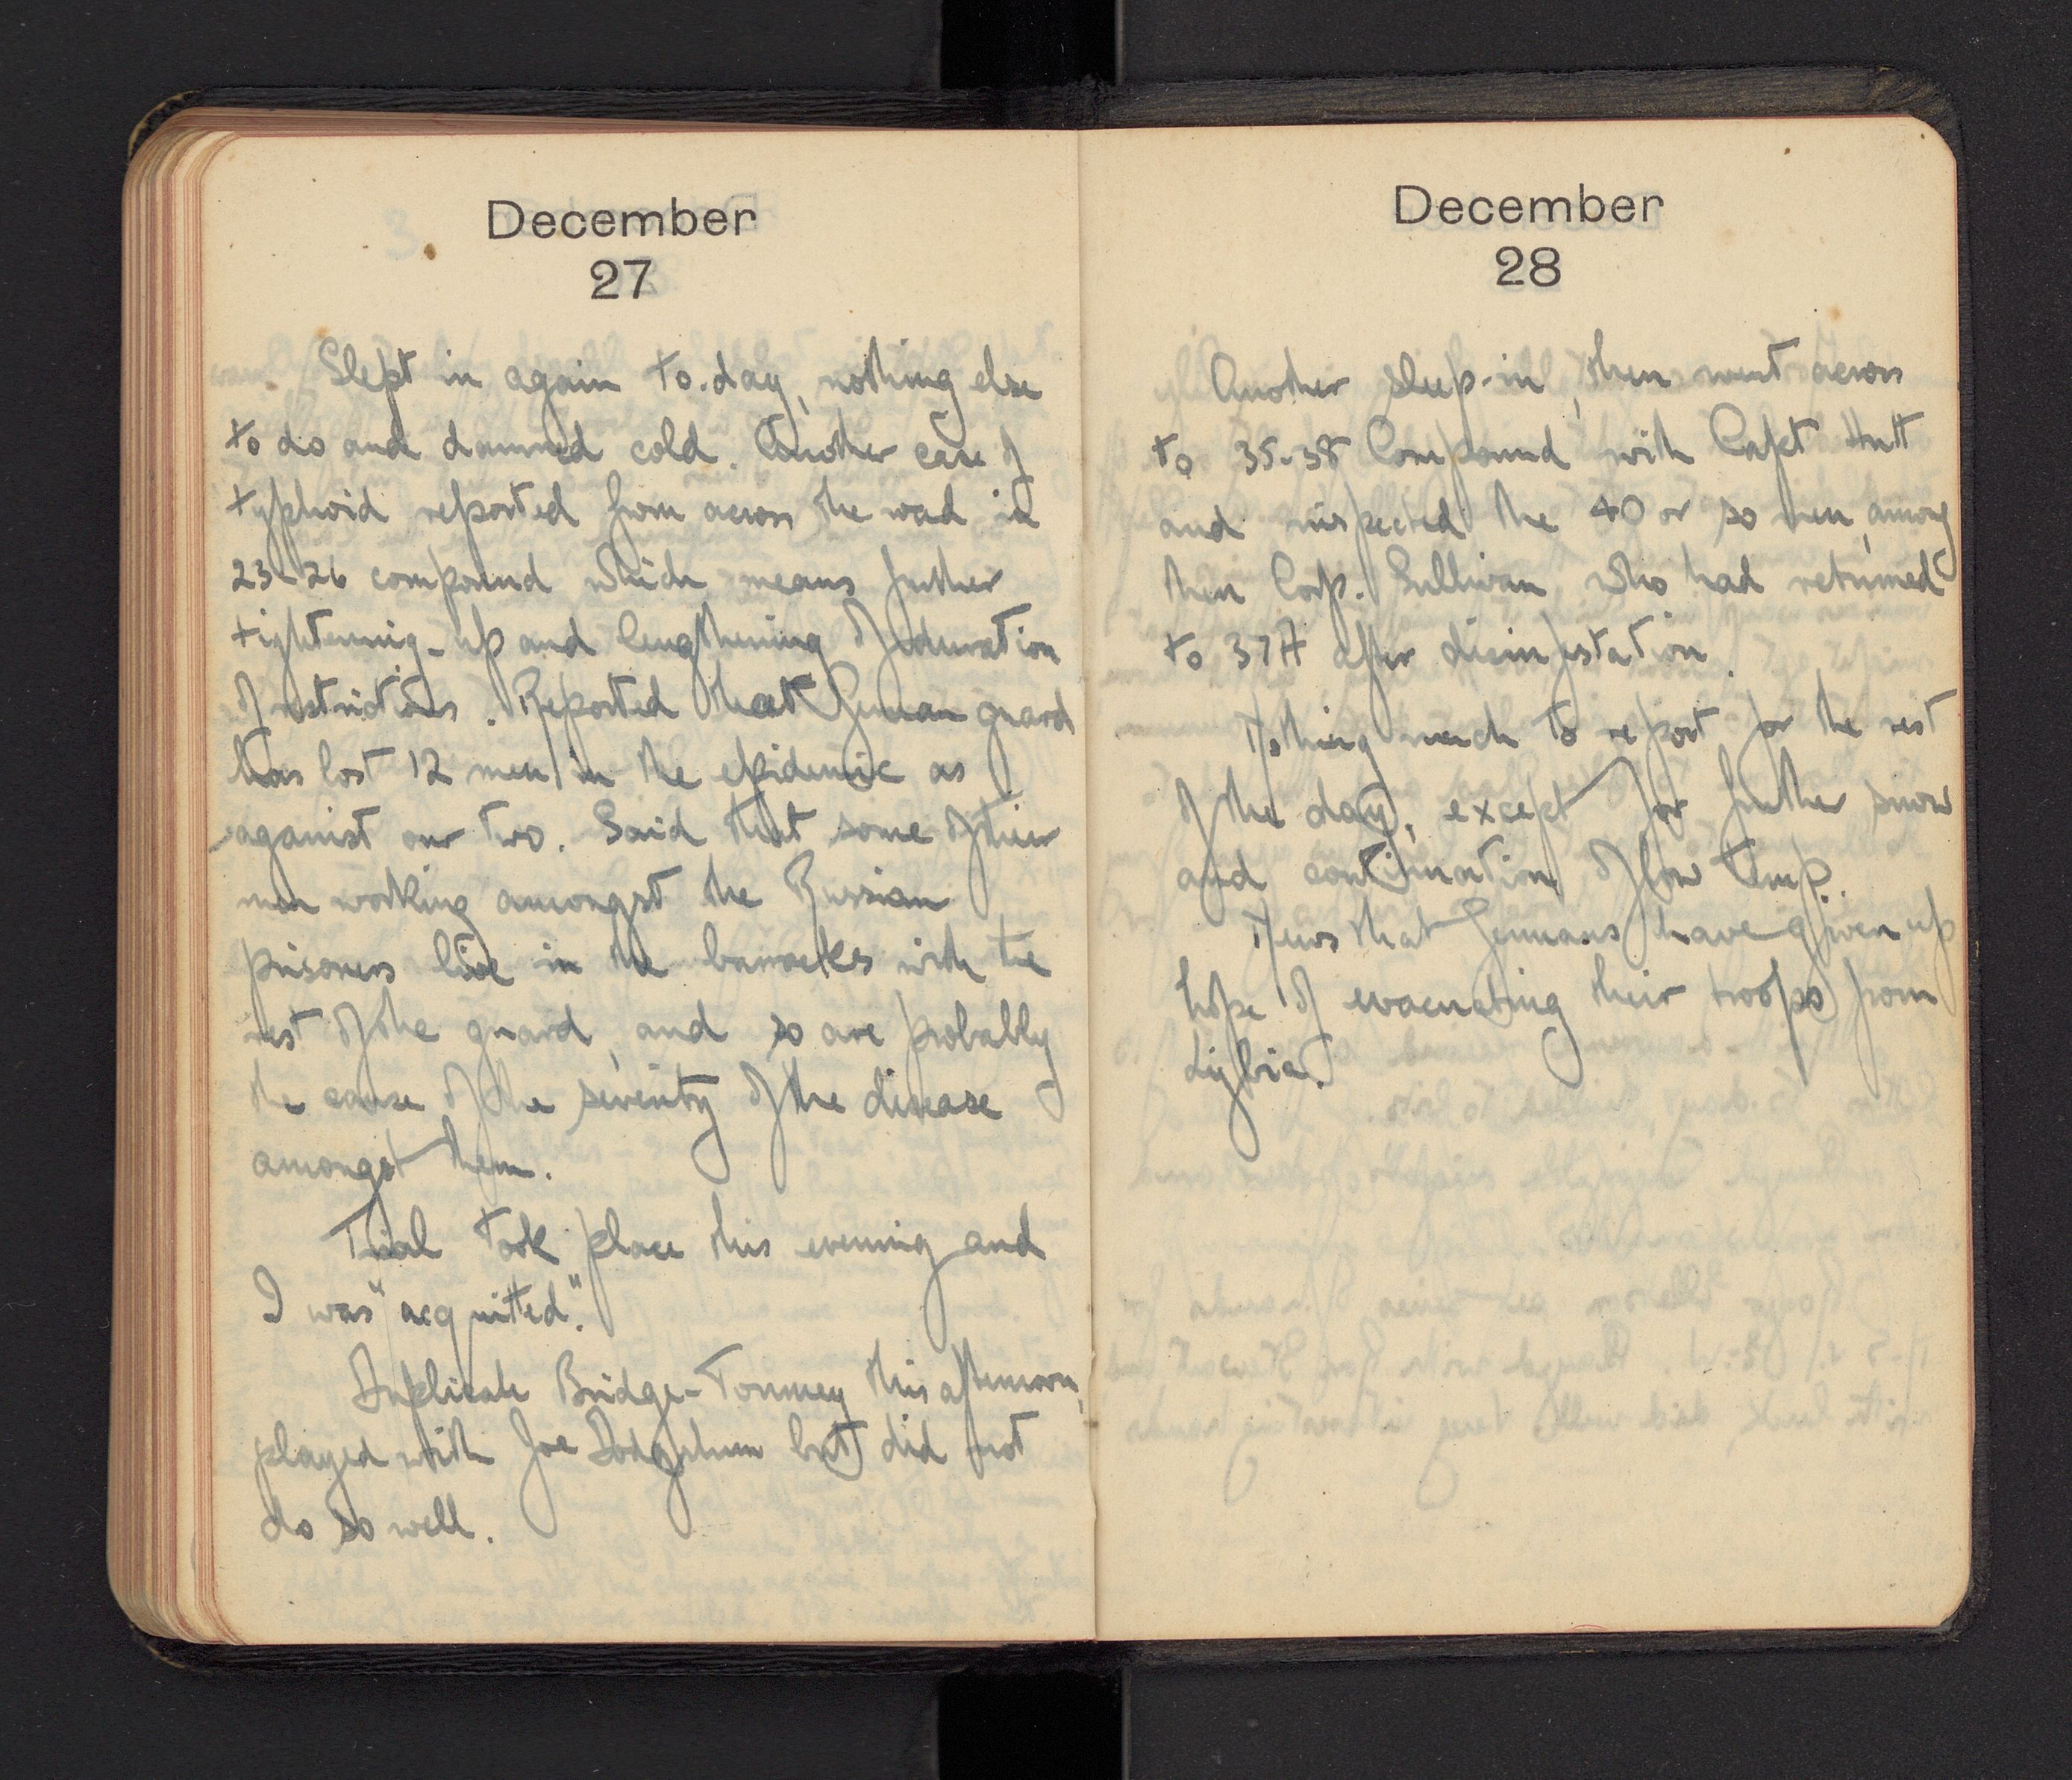 December
27
Slept in again to.day, nothing else
to do and damned cold. Another case of
typhoid reported from across the road in
23-26 compound which means further
tightening-up and lengthening of duration
of restrictions. Reported that German guard
has lost 12 men in the epidemic as
against our two. Said that some of their
men working amongst the Russian
prisoners live in the barracks with the
rest of the guard, and so are probably
the cause of the severity of the disease
amongst them.
Trial took place this evening and
I was "acquitted".
Duplicate Bridge-Tourney this afternoon,
played with Joe but did not
do so well.
December
28
Another sleep-in, then went across
to 35-38 Compound with Capt Hutt
and inspected the 40 or so men, among
them Corp. Sullivan who had returned
to 37A after disinfestation.
Nothing much to report for the rest
of the day, except for further snow
and continuation of low temp.
News that Germans have given up
hope of evacuating their troops from
Lybia.